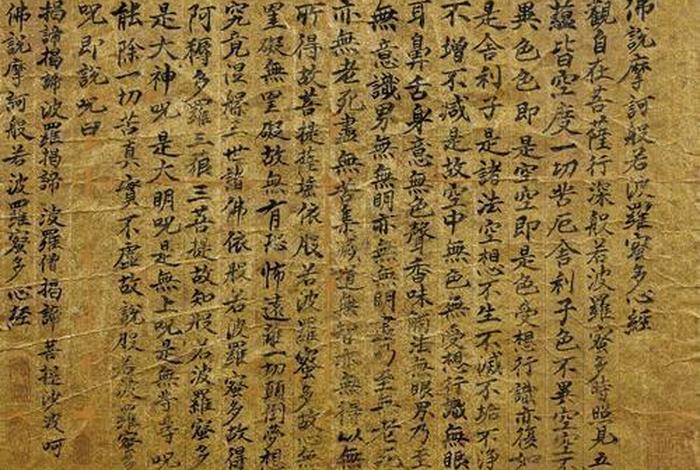 佛說摩訶般若波羅蜜多心經
觀自在菩薩行深般若波羅蜜多時照見五
蘊皆空度一切苦厄舍利子色不異空空不
異色色即是空空即是色受想行識亦復如
是舍利子是諸法空想不生不滅不垢不淨
不增不減是故空中無色無受想行識無眼
耳鼻舌身意無色聲香味觸法無眼界乃至
無意識界無無明亦無無明盡乃至無老死
亦無老死盡無苦集滅道無智亦無得以無
所得故菩提薩埵依般若波羅蜜多故心無
罣礙無罣礙故無有恐怖遠離一切顛倒夢想
究竟涅槃三世諸佛依般若波羅蜜多故得
阿耨多羅三藐三菩提故知般若波羅蜜多
是大神呪是大明呪是無上呪是無等等呪
能除一切苦真實不虛故說般若波羅蜜多
呪即說呪曰
揭諦揭諦波羅揭諦 波羅僧揭諦 菩提沙婆呵
佛說摩訶般若波羅蜜多心經